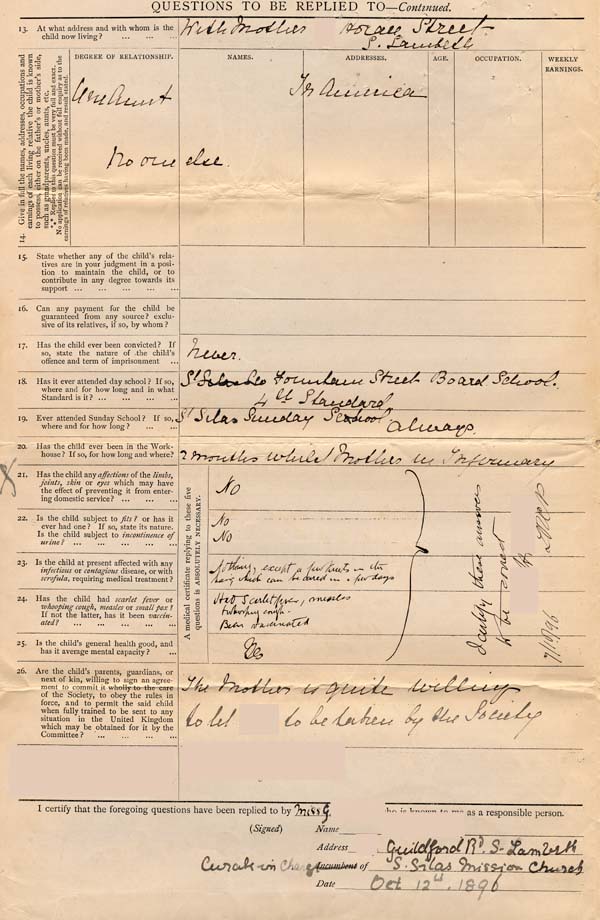 QUESTIONS TO BE REPLIED TO—Continued.
13. At what address and with whom is the
child now living? ... ... ...
With Mother Horace Street
S. Lambeth
14. Give in full the names, addresses, occupations and
earnings of each living relative the child is known
to possess, either on the father's or mother's side,
such as grandparents, uncles, aunts, etc.
*** Replies to this question must be very full and exact.
No application can be received without full enquiry as to the
earnings of relatives having been made, and result stated.
DEGREE OF RELATIONSHIP. NAMES. ADDRESSES. AGE. OCCUPATION. WEEKLY
EARNINGS.
One Aunt In America
No one else.
15. State whether any of the child's rela-
tives are in your judgment in a posi-
tion to maintain the child, or to
contribute in any degree towards its
support ... ... ... ...
16. Can any payment for the child be
guaranteed from any source? exclu-
sive of its relatives, if so, by whom?
17. Has the child ever been convicted? If
so, state the nature of the child's
offence and term of imprisonment ...
Never.
18. Has it ever attended day school? If so,
where and for how long and in what
Standard is it? ... ... ...
Fountain Street Board School.
4th Standard
19. Ever attended Sunday School? If so,
where and for how long? ... ...
St Silas Sunday School always.
20. Has the child ever been in the Work-
house? If so, for how long and where?
2 months whilst Mother in Infirmary
21. Has the child any affections of the limbs,
joints, skin or eyes which may have
the effect of preventing it from enter-
ing domestic service? ... ... ...
No
A medical certificate replying to these five
questions is ABSOLUTELY NECESSARY.
22. Is the child subject to fits? or has it
ever had one? If so, state its nature.
Is the child subject to incontinence of
urine? ... ... ... ...
No
No
23. Is the child at present affected with any
infectious or contagious disease, or with
scrofula, requiring medical treatment?
Nothing, except a few nits in the
hair, which can be cured in a few days
24. Has the child had scarlet fever or
whooping cough, measles or small pox?
If not the latter, has it been vaccin-
ated? ... ... ... ...
Had Scarlet fever, measles
& whooping cough.
Been vaccinated
25. Is the child's general health good, and
has it average mental capacity? ...
Yes
I certify these answers
to be correct
26. Are the child's parents, guardians, or
next of kin, willing to sign an agree-
ment to commit it wholly to the care
of the Society, to obey the rules in
force, and to permit the said child
when fully trained to be sent to any
situation in the United Kingdom
which may be obtained for it by the
Committee? ... ... ... ...
The Mother is quite willing
to let to be taken by the Society
I certify that the foregoing questions have been replied to by Miss G. who is known to me as a responsible person.
(Signed) Name
Address Guildford Rd. S. Lambeth
Curate in Charge Incumbent of S. Silas Mission Church
Date Oct 12th. 1896